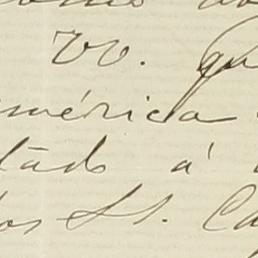 VV. qu
mérica
tado á
los SS. Ca